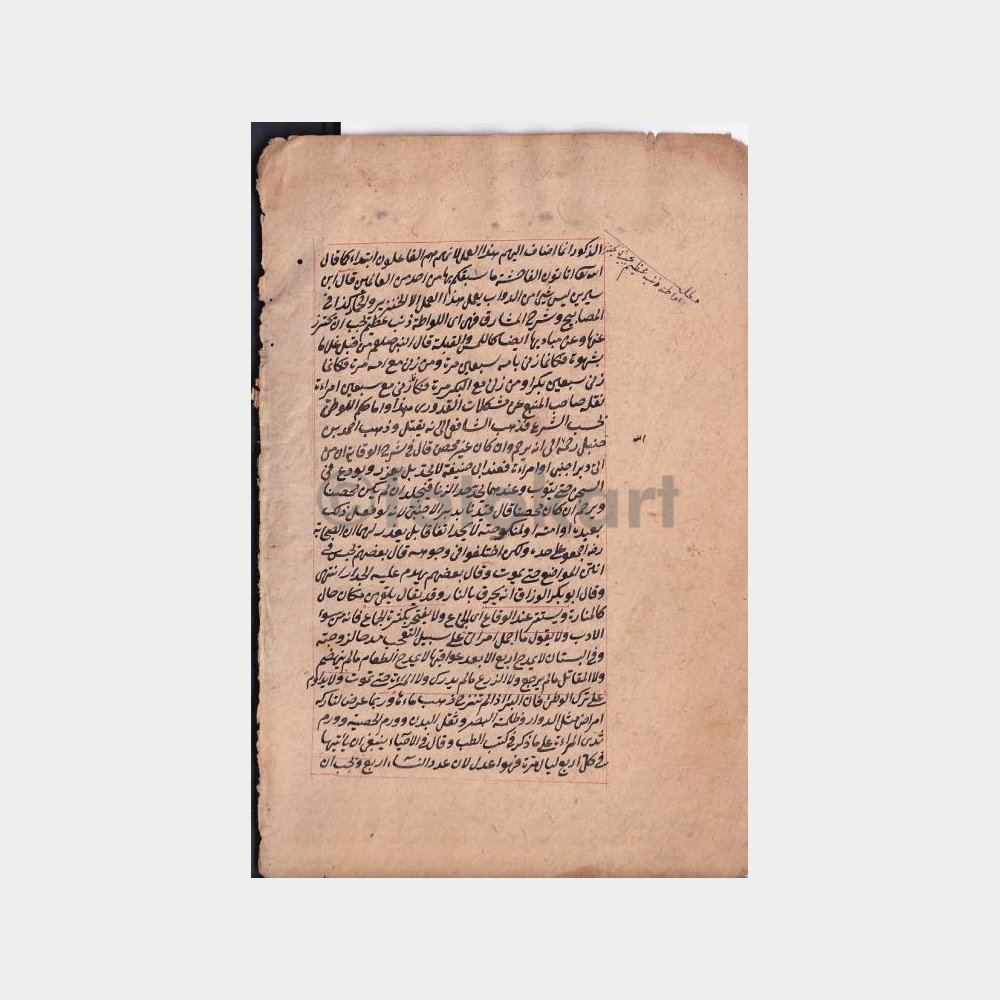 الذكور انما اضاف اليهم هذا العمل لانهم هم الفاعلون ابتداء كما قال
الله تعالى اتاتون الفاحشة ما سبقكم بها من احد من العالمين قال ابن
سيرين ليس شئ من الدواب يعمل هذا العمل الا الخنزير والحمار كذا في
المصابيح وشرح المشارق فهى اى اللواطة ذنب عظيم يجب ان يحترز
عنها وعن مباديها ايضا كاللمس والقبلة قال النبى صلعم من قبل غلاما
بشهوة فكانما زنى بامه سبعين مرة ومن زنى مع امه مرة فكانما
زنى سبعين بكرا ومن زنى مع البكر مرة فكانما زنى مع سبعين امراءة
نقل صاحب المنبع عن مشكلات القدورى هذا واما حكم اللوطى
بحسب الشرع فذهب الشافعى الى انه يقتل وذهب احمد بن
حنبل رحمه الى انه يرجم وان كان غير محصن قال فى شرح الوقاية ان من
اتى دبر اجنبى او امراءة فعند ابى حنيفة لا يحد بل يعزر ويودع فى
السجن حتى يتوب وعندهما يحد حد الزنا فيجلد ان لم يكن محصنا
ويرجم ان كان محصنا قال قيد بالدبر الاجنبى لانه لو فعل ذلك
بعبده او امته او منكوحته لا يحد اتفاقا بل يعزر لهما ان الصحابة
رضـ اجمعوا على حده ولكن اختلفوا فى وجوهه قال بعضهم يحبس فى
انتن المواضع حتى يموت وقال بعضهم يهدم عليه الجدار انتهى
وقال ابو بكر الوراق انه يحرق بالنار وقد يقال يلقى من مكان عال
كالمنارة ويستتر عند الوقاع اى الجماع ولا يفتخر بكثرة الجماع فانه من سوء
الادب ولا يقول ما اجمل امراتى على سبيل التعجب مدحا لزوجته
وفى البستان لا يمدح اربع الا بعد عواقبها لا يمدح الطعام مالم ينهضم
ولا المقاتل مالم يرجع ولا الزرع مالم يدرك ولا المراءة حتى تموت ولا يداوم
على ترك الوطئ فان البئر اذا لم تنزح ذهب ماءها وربما عرض لتاركه
امراض مثل الدوار وظلمة البصر وثقل البدن وورم الخصية وورم
ثدى المراءة على ما ذكر فى كتب الطب وقال فى الاحياء ينبغى ان ياتيها
فى كل اربع ليال مرة فهو اعدل لان عدد النساء اربع ويجب ان
مطلب
اللواطة ذنب عظيم
الله
©fotokart